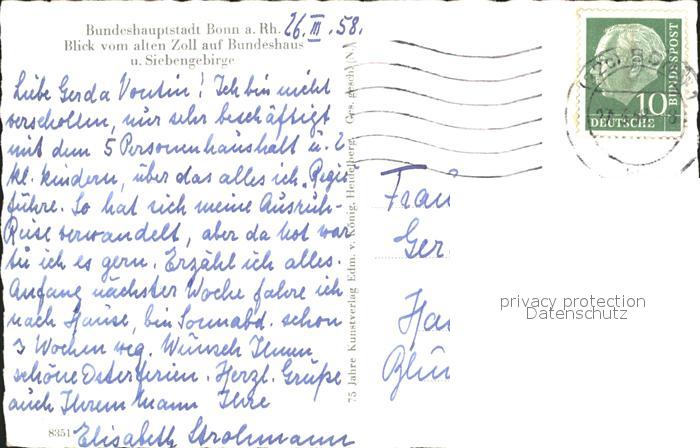 Bundeshauptstadt Bonn a. Rh.
Blick vom alten Zoll auf Bundeshaus
u. Siebengebirge
26. III. 58.
Liebe Gerda! Ich bin nicht
verschollen, nur sehr beschäftigt
mit dem 5 Personenhaushalt u. 2
kl. Kindern, über das alles ich „Regie
führe. So hat sich meine Ausruh-
Reise verwandelt, aber da Not war
tu ich es gern. Erzähl ich alles.
Anfang nächster Woche fahre ich
nach Hause, bin Sonnabd. schon
3 Wochen weg. Wünsch Ihnen
schöne Osterferien. Herzl. Grüße
auch Ihrem Mann Ihre
Elisabeth Strohmann
8351
75 Jahre Kunstverlag Edm. v. König, Heidelberg. Ges. gesch. (N.)
DEUTSCHE BUNDESPOST
10
Frau
Ger
Ha
Blü
privacy protection
Datenschutz